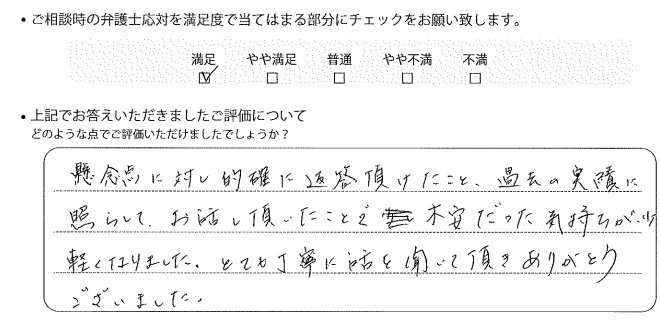 ・ご相談時の弁護士応対を満足度で当てはまる部分にチェックをお願い致します。
満足 やや満足 普通 やや不満 不満
・上記でお答えいただきましたご評価について
どのような点でご評価いただけましたでしょうか？
懸念点に対し的確に返答頂けたこと、過去の実績に
照らして、お話し頂いたことで 不安だった気持ちが少
軽くなりました。とても丁寧に話を聞いて頂きありがとう
ございました。